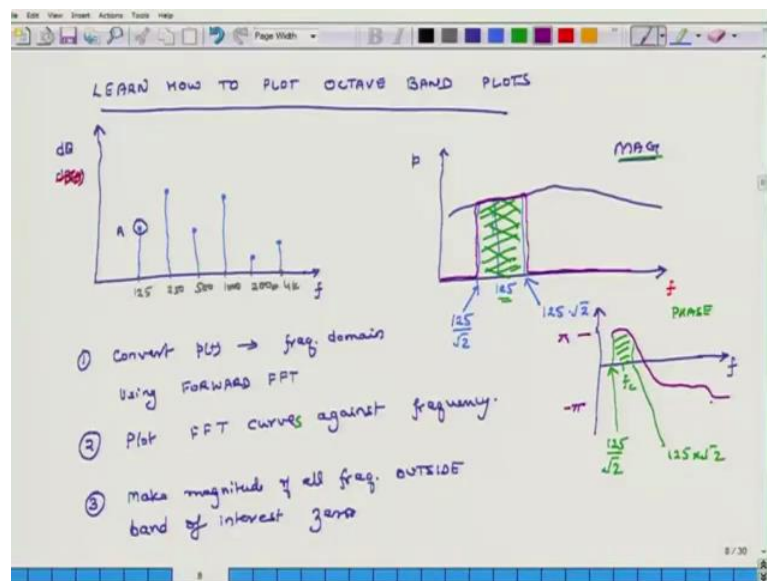 File Edit View Insert Actions Tools Help
Page Width
LEARN HOW TO PLOT OCTAVE BAND PLOTS
dB
A
125 250 500 1000 2000 4K f
p
MAG
125
f
125/√2
125√2
PHASE
π
-π
fc
f
125/√2
125×√2
① Convert p(t) → freq. domain
Using FORWARD FFT
② Plot FFT curves against frequency.
③ Make magnitude of all freq. OUTSIDE
band of interest zero
8 / 30
8